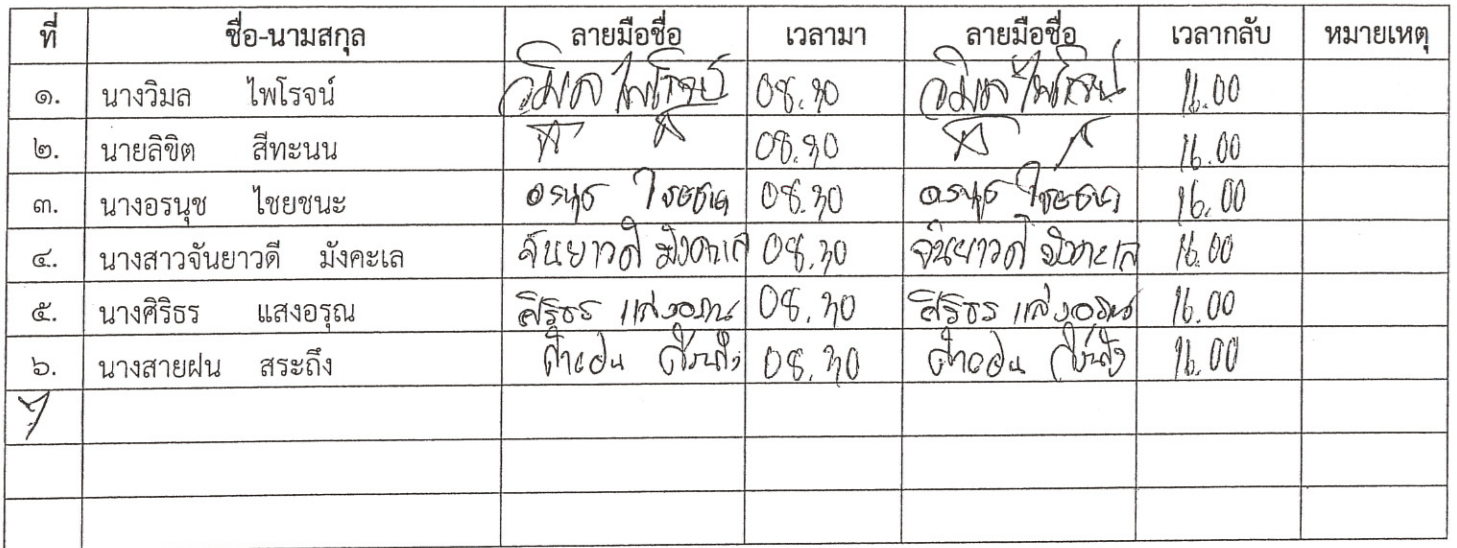 ที่ ชื่อ-นามสกุล ลายมือชื่อ เวลามา ลายมือชื่อ เวลากลับ หมายเหตุ
๑. นางวิมล ไพโรจน์ วิมล ไพโรจน์ 08.30 วิมล ไพโรจน์ 16.00
๒. นายลิขิต สีทะนน 08.30 16.00
๓. นางอรนุช ไชยชนะ อรนุช ไชยชนะ 08.30 อรนุช ไชยชนะ 16.00
๔. นางสาวจันยาวดี มังคะเล จันยาวดี มังคะเล 08.30 จันยาวดี มังคะเล 16.00
๕. นางศิริธร แสงอรุณ ศิริธร แสงอรุณ 08.30 ศิริธร แสงอรุณ 16.00
๖. นางสายฝน สระถึง สายฝน สระถึง 08.30 สายฝน สระถึง 16.00